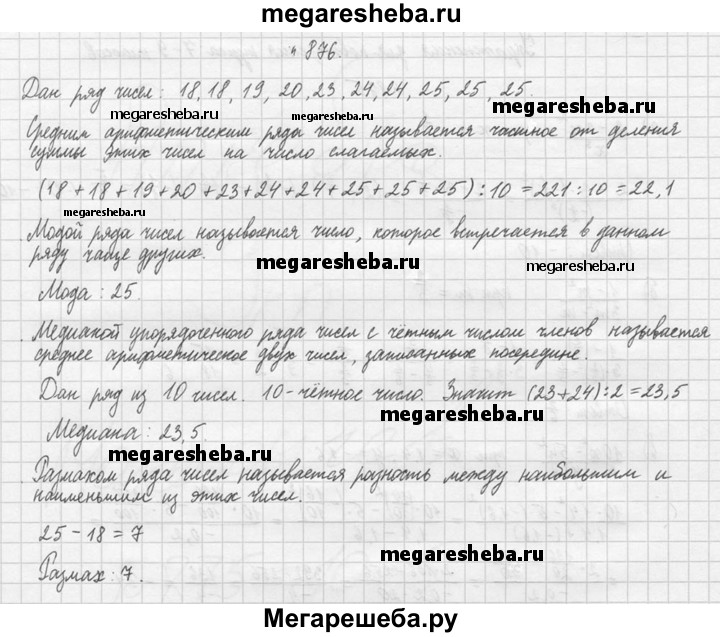 megaresheba.ru
n 876.
Дан ряд чисел: 18, 18, 19, 20, 23, 24, 24, 25, 25, 25.
megaresheba.ru
megaresheba.ru
Средним арифметическим ряда чисел называется частное от деления
суммы этих чисел на число слагаемых.
(18 + 18 + 19 + 20 + 23 + 24 + 24 + 25 + 25 + 25) : 10 = 221 : 10 = 22,1
megaresheba.ru
Модой ряда чисел называется число, которое встречается в данном
ряду чаще других.
megaresheba.ru
megaresheba.ru
Мода: 25.
Медианой упорядоченного ряда чисел с чётным числом членов называется
среднее арифметическое двух чисел, записанных посередине.
Дан ряд из 10 чисел. 10 - чётное число. Значит (23+24):2=23,5
megaresheba.ru
Медиана: 23,5.
megaresheba.ru
Размахом ряда чисел называется разность между наибольшим и
наименьшим из этих чисел.
25 - 18 = 7
megaresheba.ru
Размах: 7.
Мегарешеба.ру